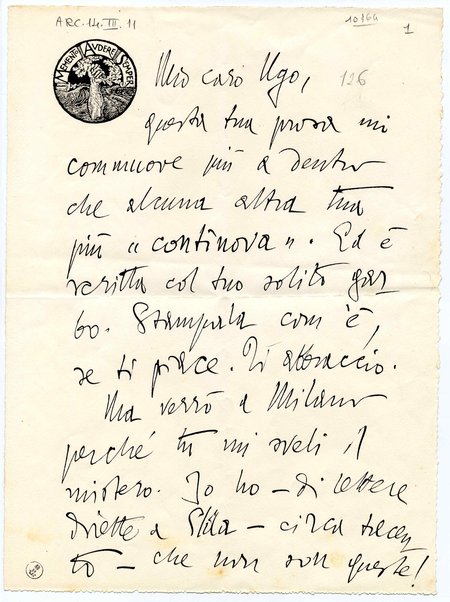 ARC.14.III.11
10164
1
MEMENTO AVDERE SEMPER
126
Mio caro Ugo,
questa tua prosa mi
commuove più a dentro
che alcuna altra tua
più « continova ». Ed è
scritta col tuo solito gar-
bo. Stampala com'è,
se ti piace. Ti abbraccio.
Ma verrò a Milano
perché tu mi sveli il
mistero. Io ho – di lettere
dirette a – circa trecen
to – che non son queste!